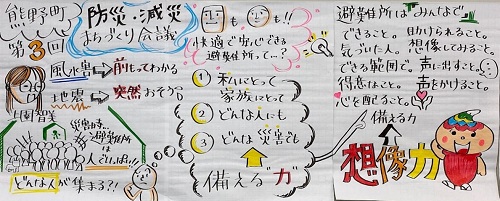 熊野町
第3回
防災・減災
まちづくり会議
風水害→前もってわかる
地震→突然おそう
災害時…
避難所は
人でいっぱい!!
どんな人が集まる?!
も も!!
快適で安心できる
避難所って…?
① 私にとって
家族にとって
② どんな人にも
③ どんな災害でも
備える力
避難所はみんなで
できること。助けられること。
気づいた人。想像してみること。
できる範囲で。声に出すこと。
得意なこと。声をかけること。
心を配ること。
備える力
想像力